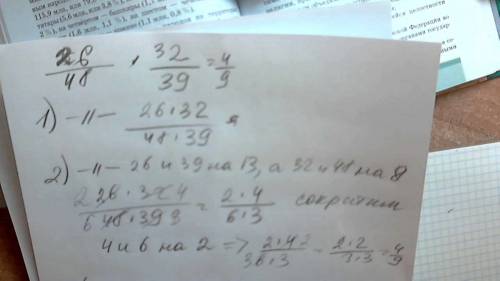 115,9 млн, или 79,
2 %), на четвертом — башкиры (1,
ской Федерации
26/48 · 32/39 = 4/9
1) –11– 26·32/48·39
2) –11– 26 и 39 на 13, а 32 и 48 на 8
2 26·32 4/6 48·39 3 = 2·4/6·3 сократим
4 и 6 на 2 => 2·4 2/3 6·3 = 2·2/3·3 = 4/9